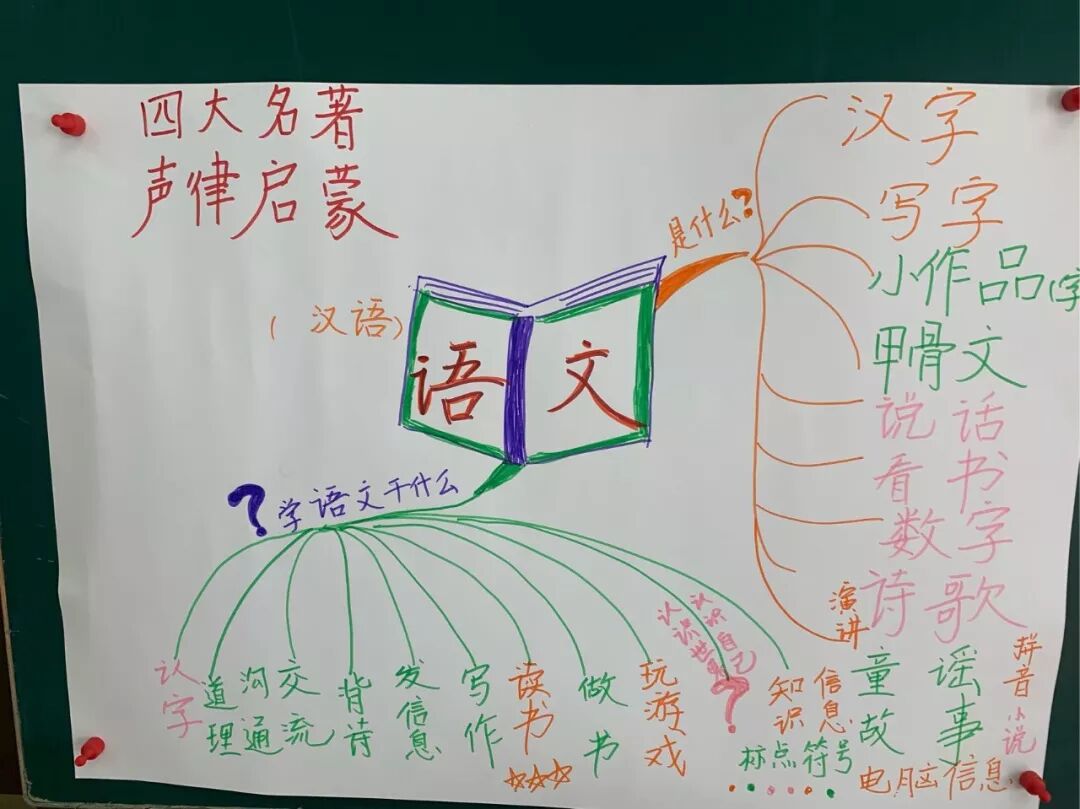 四大名著
声律启蒙
(汉语)
语文
是什么?
汉字
写字
小作品(字
甲骨文
说话
看书
数字
诗歌
演讲
童谣
故事
拼音
小说
电脑信息
?学语文干什么
认字
道理
沟通
交流
背诗
发信息
写作
读书
做书
玩游戏
认识世界
认识自己
?
知识
信息
标点符号